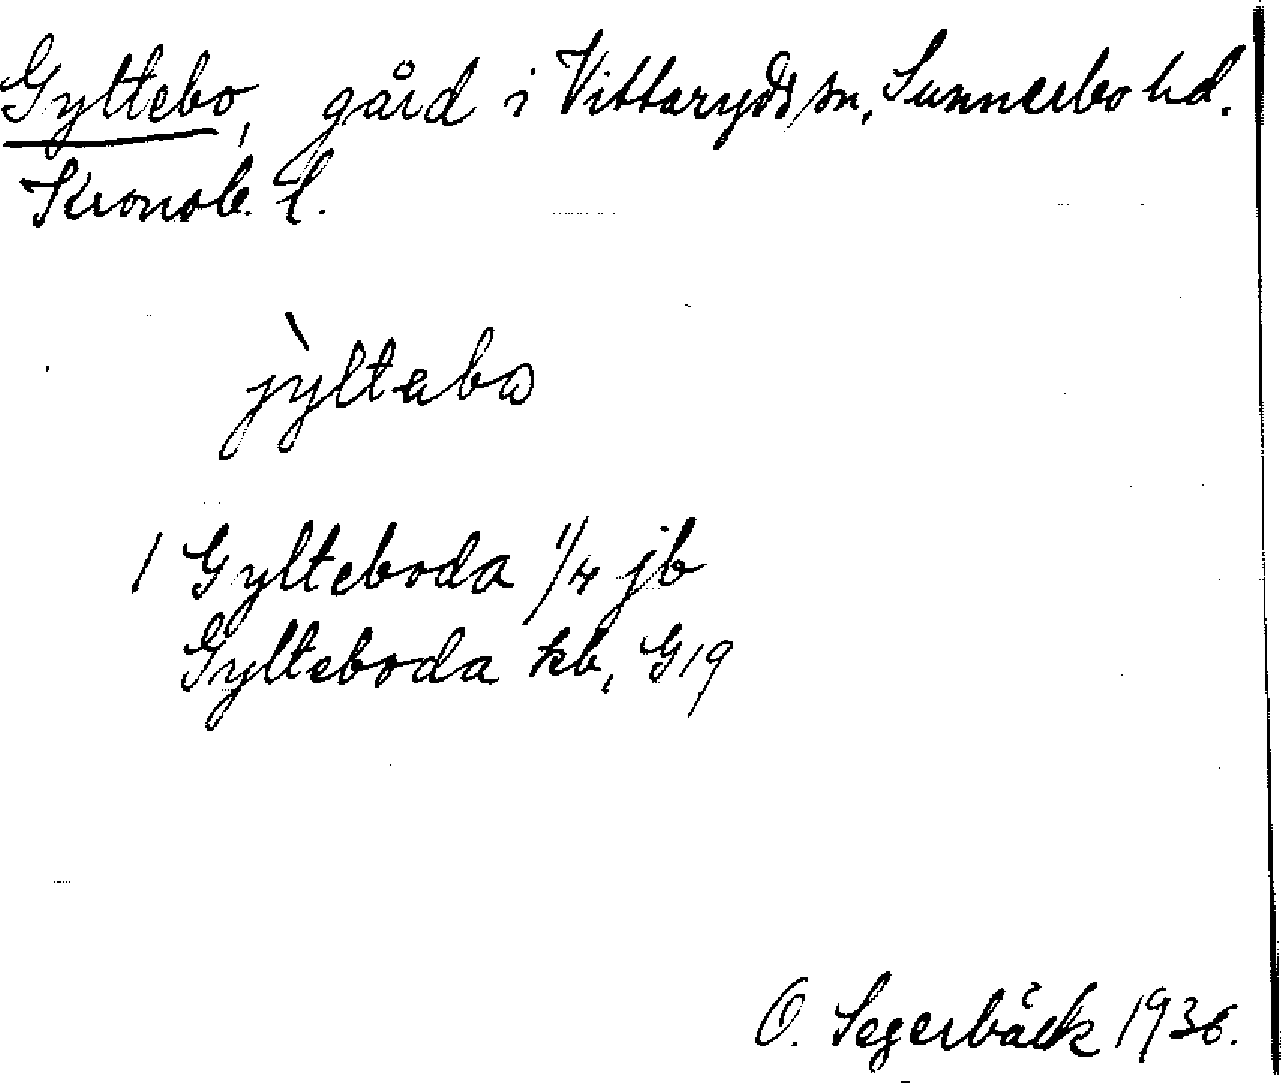 Gyltebo, gård i Vittaryds sn, Sunnerbo hd.
Kronob. l.
jỳltabo
1 Gylteboda 1/4 jb
Gylteboda kb, G19
O. Segerbäck 1936.